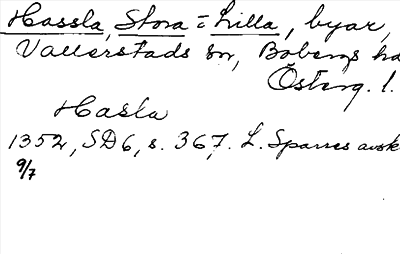 Hassla, Stora = Lilla, byar,
Vallerstads sn, Bobergs hd
Österg. l.
Hasla
1352, SD 6, s. 367. L. Sparres avsk
9/7